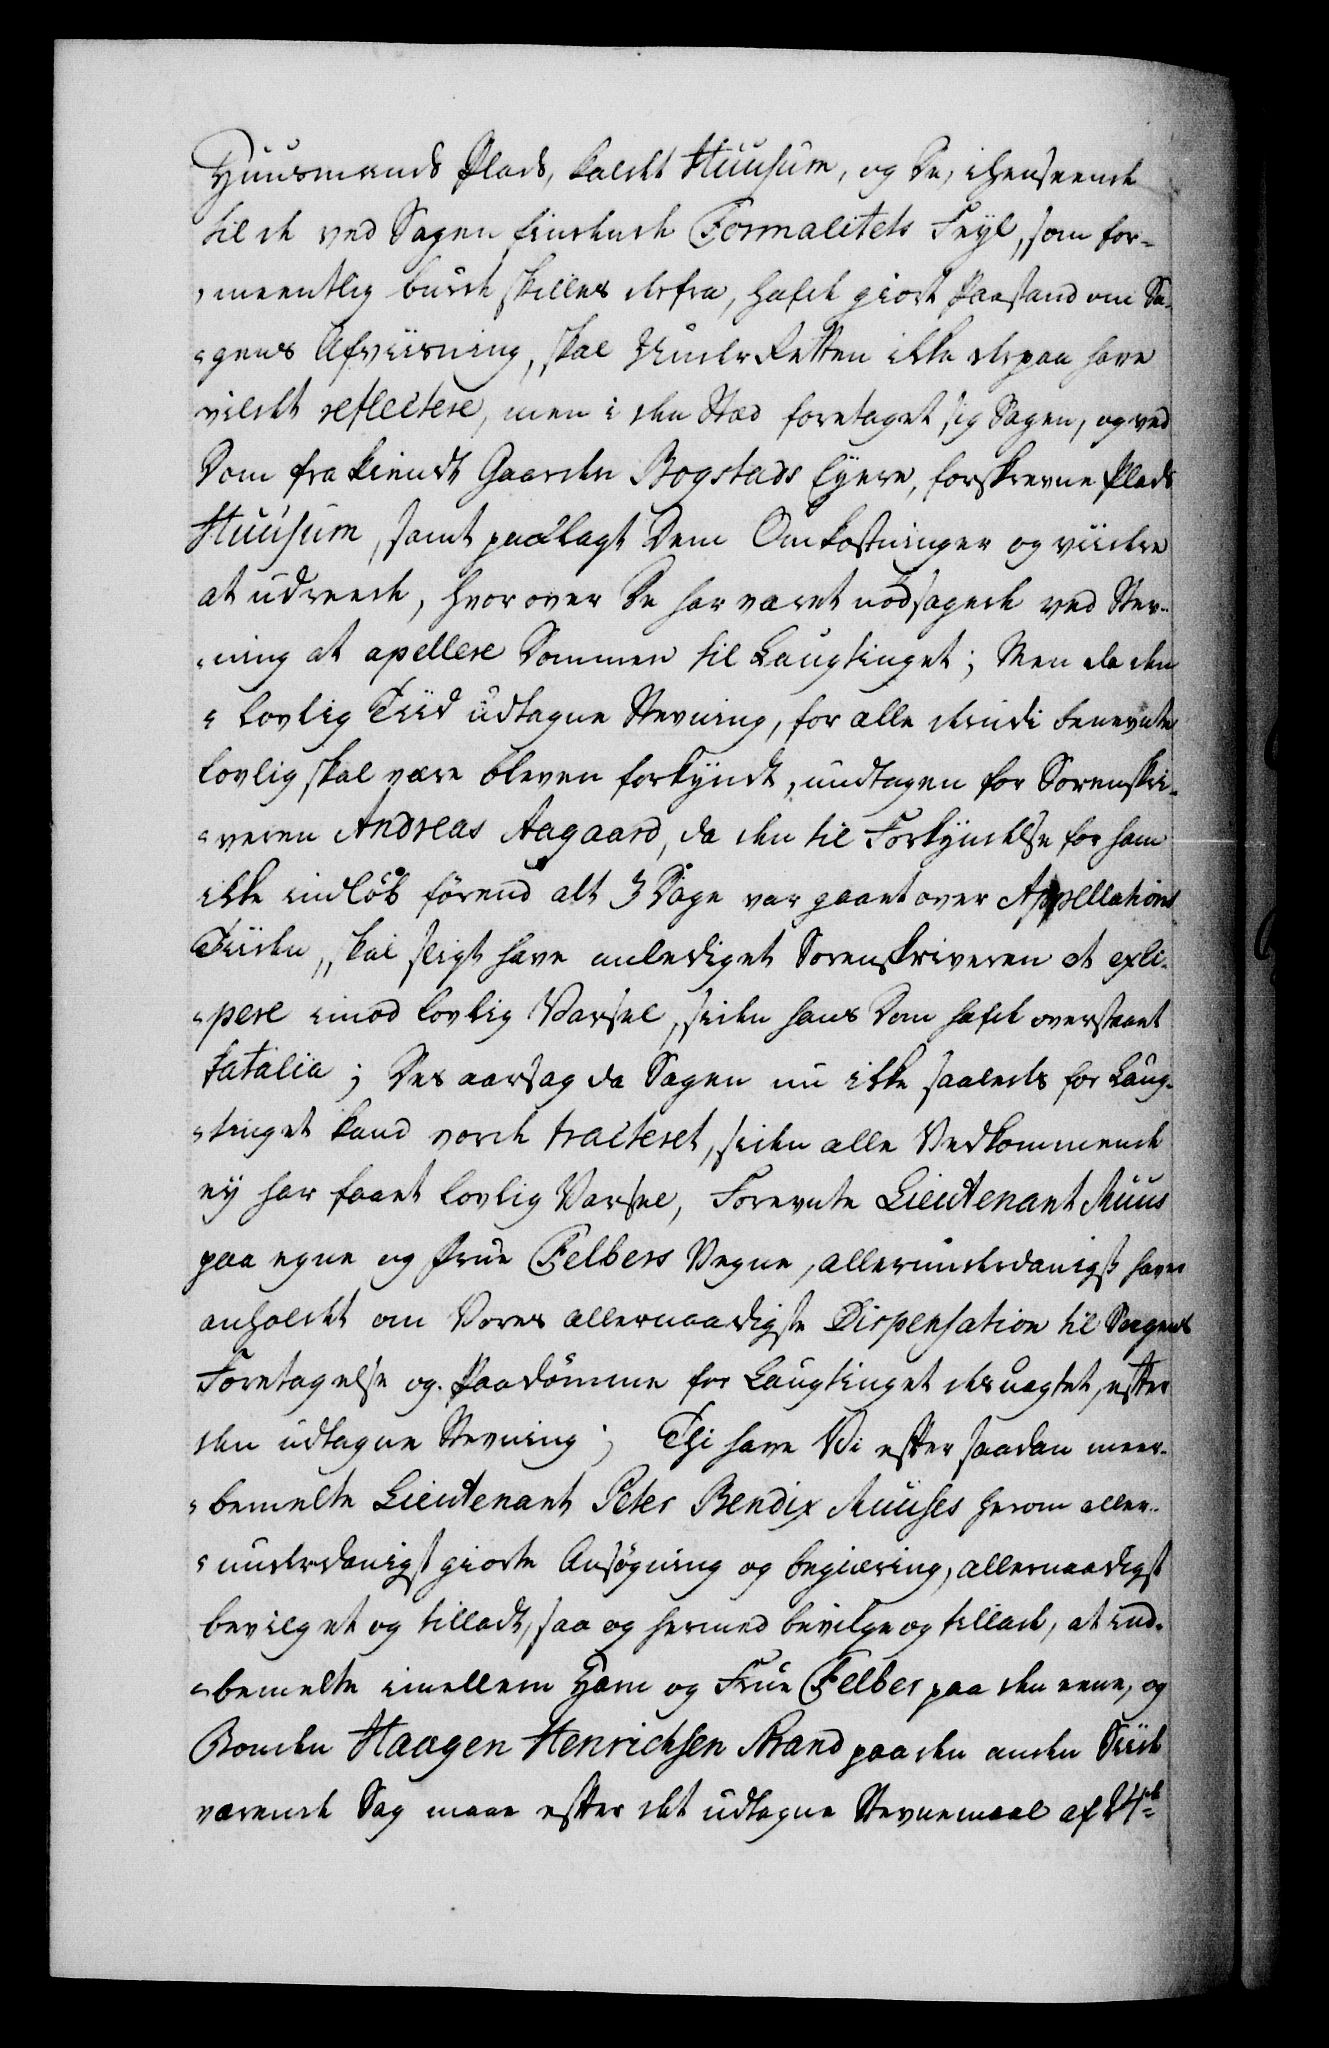 Huusmands Plads, kaldet Huusum, og De, i henseende
til de ved Sagen findende Formalitets Feyl, som for-
meentlig burde skilles derfra, hafde giort Paastand om Sa-
gens Afviisning, skal UnderRetten ikke derpaa have
vildet reflectere, men i den Sted foretaget sig Sagen, og ved
Dom frakiendt Gaarden Bogstads Eyere, forskrevne Plads
Huusum, samt paalagt Dem Omkostninger og viidere
at udreede, hvorover De har været nödsagede ved Stev-
ning at apellere Dommen til Laugtinget; Men da den
i lovlig Tiid udtagne Stevning, for alle derudi benevnte
lovlig skal være bleven forkyndt, undtagen for Sorenskri-
veren Andreas Aagaard, da den til Forkyndelse for ham
ikke indlöb förend alt 3 Dage var gaaet over Appellations
Tiiden, skal sligt have anlediget Sorenskriveren at exci-
pere imod lovlig Varsel, siden hans Dom hafde overstaaet
fatalia; Des aarsag da Sagen nu ikke saaledes for Laug-
tinget kand vorde tracteret, siden alle Vedkommende
ey har faaet lovlig Varsel, Forevnte Lieutenant Muus
paa egne og Frue Felbers Vegne, allerunderdanigst haver
anholdet om Vores allernaadigste Dispensation til Sagens
Foretagelse og Paadömme for Laugtinget desuagtet, efter
den udtagne Stevning; Thi have Vi efter saadan meer-
bemelte Lieutenant Peter Bendix Muuses herom aller-
underdanigst giorte Ansøgning og begiæring, allernaadigst
bevilget og tilladt, saa og hermed bevilge og tillade, at ind-
bemelte imellem Ham og Frue Felber paa den eene, og
Bonden Haagen Henrichsen Strand paa den anden Siide
værende Sag maae efter det udtagne Stevnemaal af 24de